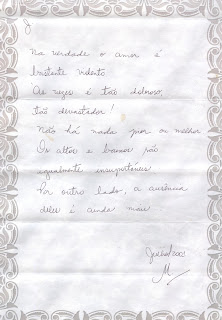 J
Na verdade o amor é
bastante violento
As vezes é tão doloroso,
tão devastador!
Não há nada pior ou melhor
Os altos e baixos são
igualmente insuportáveis
Por outro lado, a ausência
deles é ainda mais.
M